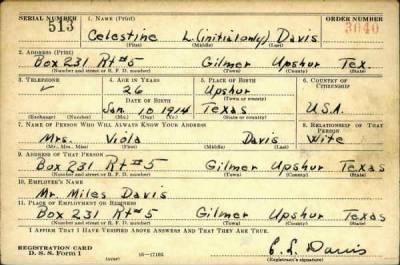 SERIAL NUMBER 1. NAME (Print) ORDER NUMBER
513 Celestine L.(initial only) Davis 3040
(First) (Middle) (Last)
2. ADDRESS (Print)
Box 231 Rt #5 Gilmer Upshur Tex.
(Number and street or R. F. D. number) (Town) (County) (State)
3. TELEPHONE 4. AGE IN YEARS 5. PLACE OF BIRTH 6. COUNTRY OF CITIZENSHIP
✓ 26 Upshur
DATE OF BIRTH (Town or county)
Jan. 10 1914 Texas U.S.A.
(Exchange) (Number) (Mo.) (Day) (Yr.) (State or country)
7. NAME OF PERSON WHO WILL ALWAYS KNOW YOUR ADDRESS 8. RELATIONSHIP OF THAT PERSON
Mrs. Viola Davis Wife
(Mr., Mrs., Miss) (First) (Middle) (Last)
9. ADDRESS OF THAT PERSON
Box 231 Rt #5 Gilmer Upshur Texas
(Number and street or R. F. D. number) (Town) (County) (State)
10. EMPLOYER'S NAME
Mr. Miles Davis
11. PLACE OF EMPLOYMENT OR BUSINESS
Box 231 Rt #5 Gilmer Upshur Texas
(Number and street or R. F. D. number) (Town) (County) (State)
I AFFIRM THAT I HAVE VERIFIED ABOVE ANSWERS AND THAT THEY ARE TRUE.
REGISTRATION CARD
D. S. S. Form 1 16—17105 C. L. Davis
(Registrant's signature)